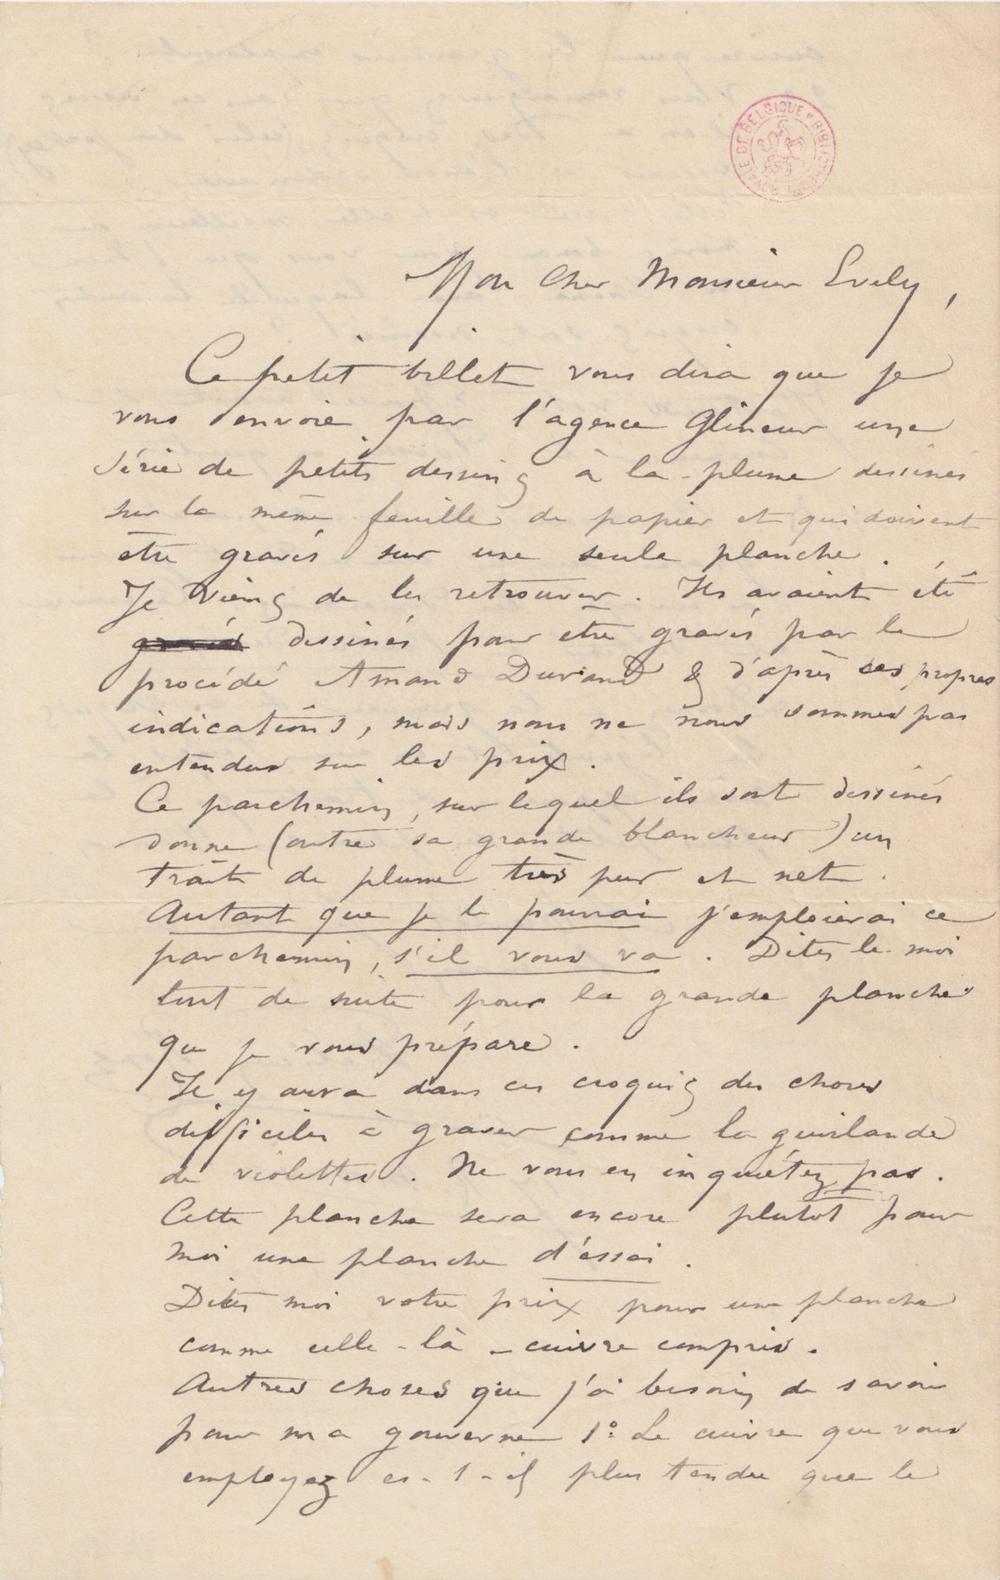 BIBLIOTHEQUE ROYALE DE BELGIQUE
Mon Cher Monsieur Evely,
Ce petit billet vous dira que je
vous envoie par l'agence Glineur une
série de petits dessins à la plume dessinés
sur la même feuille de papier et qui doivent
être gravés sur une seule planche.
Je viens de les retrouver. Ils avaient été
gravés dessinés pour être gravés par le
procédé Amand Durand & d'après ses propres
indications, mais nous ne nous sommes pas
entendus sur les prix.
Ce parchemin, sur lequel ils sont dessinés
donne (outre sa grande blancheur) un
trait de plume très pur et net.
Autant que je le pourrai j'emploierai ce
parchemin, s'il vous va. Dites le moi
tout de suite pour la grande planche
que je vous prépare.
Il y aura dans ces croquis des choses
difficiles à graver comme la guirlande
de violettes. Ne vous en inquiétez pas.
Cette planche sera encore plutôt pour
moi une planche d'essai.
Dites moi votre prix pour une planche
comme celle-là - cuivre compris.
Autres choses que j'ai besoin de savoir
pour ma gouverne 1º Le cuivre que vous
employez es-t-il plus tendre que le